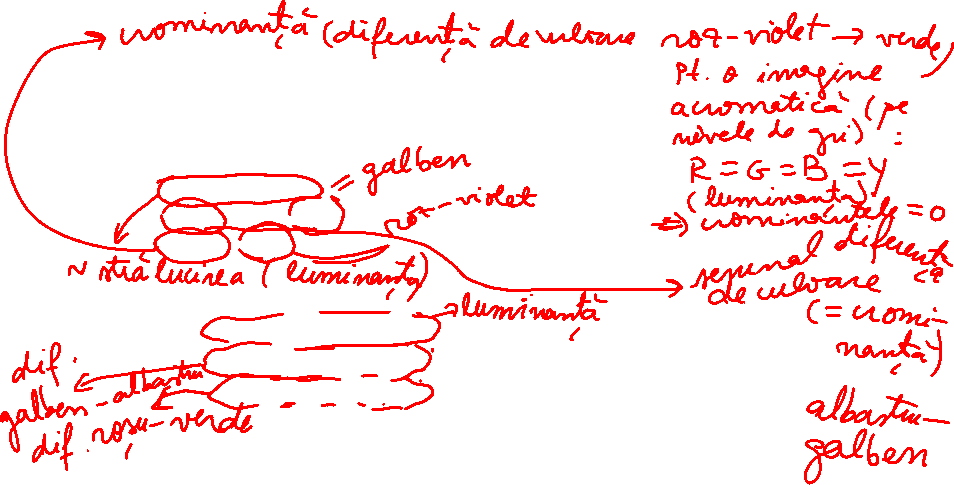 crominanță (diferență de culoare roz-violet → verde)
Pt. o imagine
acromatică (pe
nivele de gri) :
R = G = B = Y
(luminanta)
⇒ crominanțele = 0
galben
violet
~ strălucirea (luminanța)
semnal diferență
de culoare
(= cromi-
nanță)
luminanță
dif.
galben-albastru
dif. roșu-verde
albastru-
galben